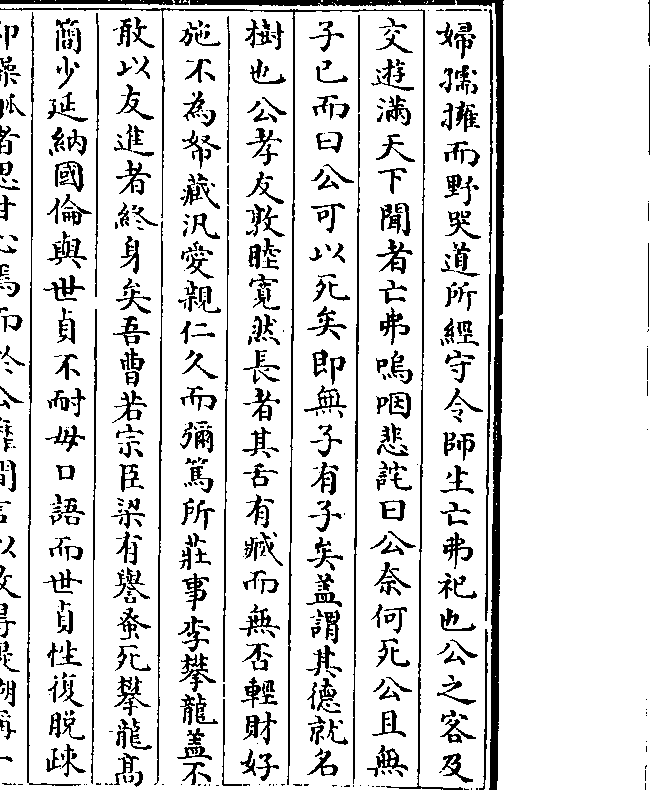 婦孺擁而野哭道所經守令師生亡弗祀也公之客及
交遊滿天下聞者亡弗嗚咽悲詫曰公奈何死公且無
子已而曰公可以死矣即無子有子矣盖謂其德就名
樹也公孝友敦睦寛然長者其舌有臧而無否輕財好
施不為帑藏汎愛親仁久而彌篤所莊事李攀龍盖不
敢以友進者終身矣吾曹若宗臣梁有譽蚤死攀龍高
簡少延納國倫與世貞不耐毋口語而世貞性復脱疎
卽操觚者思甘心焉而於公靡間言以故得